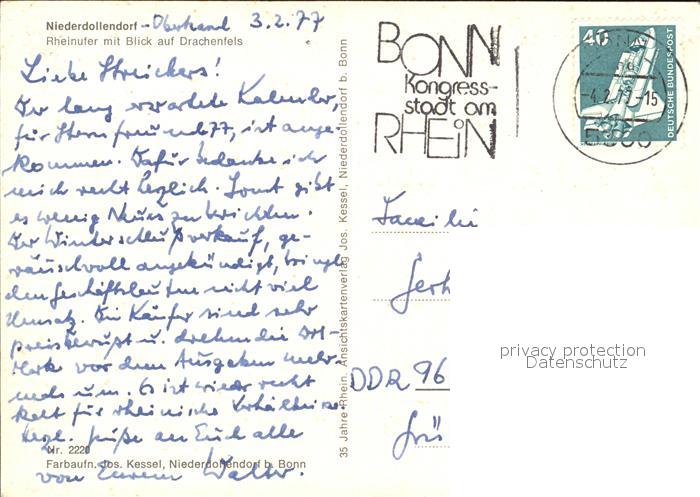 Niederdollendorf - Oberkassel 3.2.77
Rheinufer mit Blick auf Drachenfels
Liebe Streichers!
Der lang erwartete Kalender,
für Sternfreunde 77, ist ange-
kommen. Dafür bedanke ich
mich recht herzlich. Sonst gibt
es wenig Neues zu berichten.
Der Winterschlußverkauf, ge-
räuschvoll angekündigt, bringt
den Geschäftsleuten nicht viel
Umsatz. Die Käufer sind sehr
preisbewußt u. drehen die DM-
Mark vor dem Ausgeben mehr-
mals um. Es ist wieder recht
kalt für rheinische Verhältnisse.
Herzl. Grüße an Euch alle
Nr. 2220
Farbaufn. Jos. Kessel, Niederdollendorf b. Bonn
von Eurem Walter.
35 Jahre Rhein. Ansichtskartenverlag Jos. Kessel, Niederdollendorf b. Bonn
BONN
Kongress-
stadt am
RHEIN
-4.2.77-15
5300
40
DEUTSCHE BUNDESPOST
Familie
Gerh
DDR 96
Grü
privacy protection
Datenschutz